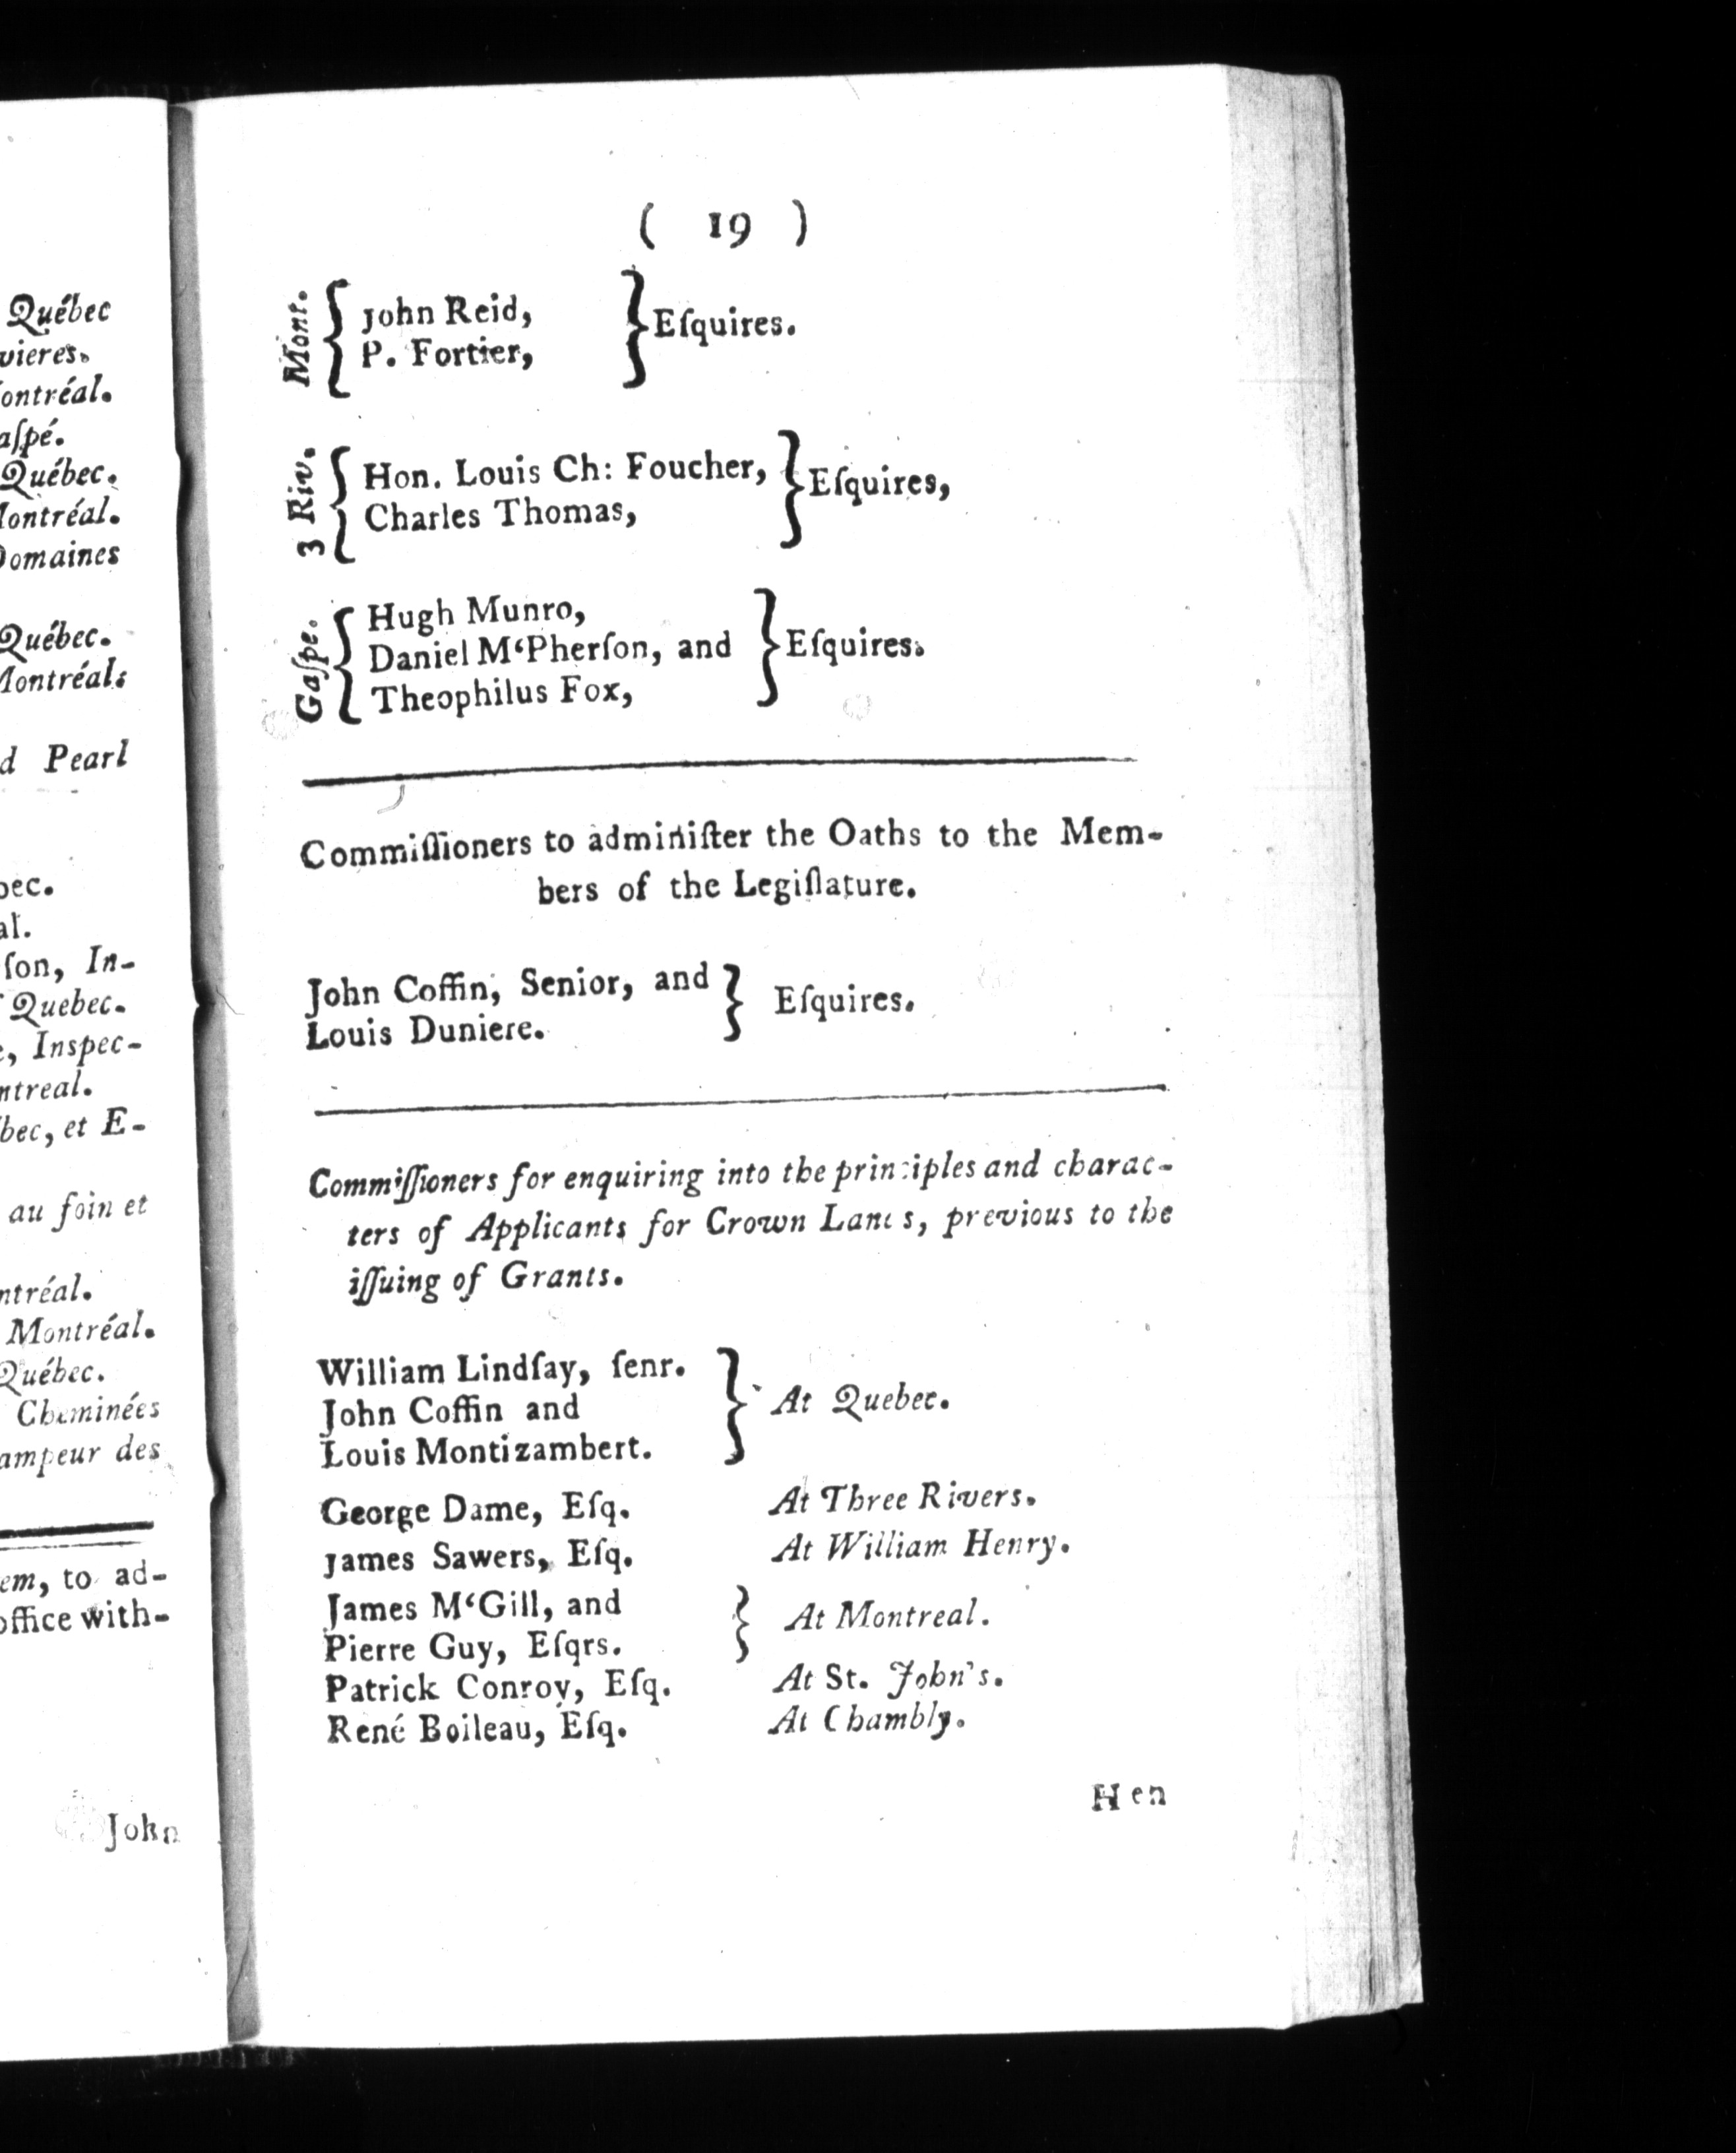 Québec
vieres.
ontréal.
aſpé.
Québec.
Montréal.
Domaines
Québec.
Montréal.
d Pearl
bec.
al.
ſon, In-
Quebec.
, Inspec-
ntreal.
bec, et E-
au foin et
ntréal.
Montréal.
Québec.
Cheminées
ampeur des
em, to ad-
office with-
John
( 19 )
Mont. { John Reid,
P. Fortier, } Eſquires.
3 Riv. { Hon. Louis Ch: Foucher,
Charles Thomas, } Eſquires,
Gaſpe. { Hugh Munro,
Daniel M‘Pherſon, and
Theophilus Fox, } Eſquires.
Commiſſioners to adminiſter the Oaths to the Mem-
bers of the Legiſlature.
John Coffin, Senior, and
Louis Duniere. } Eſquires.
Commiſſioners for enquiring into the principles and charac-
ters of Applicants for Crown Lands, previous to the
iſſuing of Grants.
William Lindſay, ſenr.
John Coffin and
Louis Montizambert. } At Quebec.
George Dame, Eſq. At Three Rivers.
James Sawers, Eſq. At William Henry.
James M‘Gill, and
Pierre Guy, Eſqrs. } At Montreal.
Patrick Conroy, Eſq. At St. John's.
René Boileau, Eſq. At Chambly.
Hen